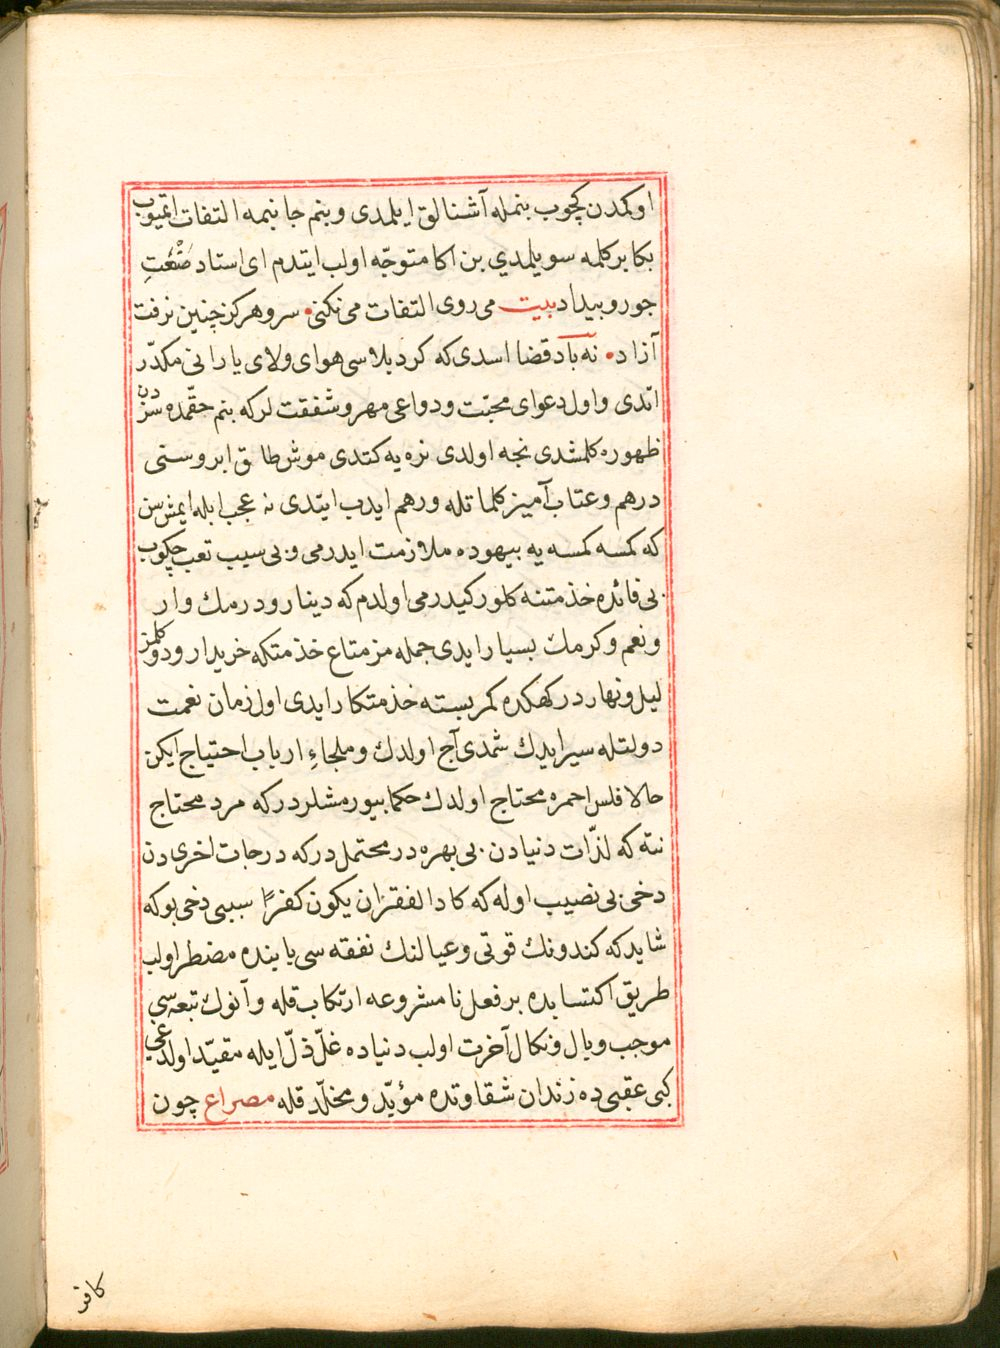 اوكمدن كچوب بنمله آشنالق ايلمدى وبنم جانبمه التفات اتميوب
بكا بر كلمه سويلمدي بن اكا متوجّه اولب ايتدم اى استاد صَنْعَتِ
جور وبيداد بيت مى روى التفات مى نكنى • سرو هركز چنين نرفت
آزاد • نه باد قضا اسدى كه كرد بلاسى هواى ولاى يارانى مكدّر
اتدى واول دعواى محبّت ودواعى مهر وشفقت لر كه بنم حقّمده سزدن
ظهوره كلمشدى نجه اولدى نره يه كتدى موش طاق ابروسنى
درهم وعتاب آميز كلماتله ورهم ايدب ايتدى نه عجب ابله ايمش سن
كه كمسه كمسه يه بيهوده ملازمت ايدرمى وبى سبب تعب چكوب
بى فائده خذمتنه كلور كيدرمى اولدم كه دينار ودرمك وار
ونعم وكرمك بسيار ايدى جمله مز متاع خذمتكه خريدار ودوكلمز
ليل ونهار دركهكده كمر بسته خذمتكار ايدى اول زمان نعمت
دولتله سير ايدك شمدى آج اولدك وملجاءِ ارباب احتياج ايكن
حالا فلس احمره محتاج اولدك حكما بيورمشلردر كه مرد محتاج
نته كه لذّات دنيادن بى بهره در محتمل در كه درجات اخرى دن
دخى بى نصيب اوله كه كاد الفقر ان يكون كفرًا سببى دخى بو كه
شايد كه كندونك قوتى وعيالنك نفقه سى بابنده مضطر اولب
طريق اكتسابده بر فعل نا مشروعه ارتكاب قله وآنوك تبعه سى
موجب وبال ونكال آخرت اولب دنياده غلّ ذلّ ايله مقيّد اولدغى
كبى عقبى ده زندان شقاوتده مؤبّد ومخلّد قله مصراع چون
كافر